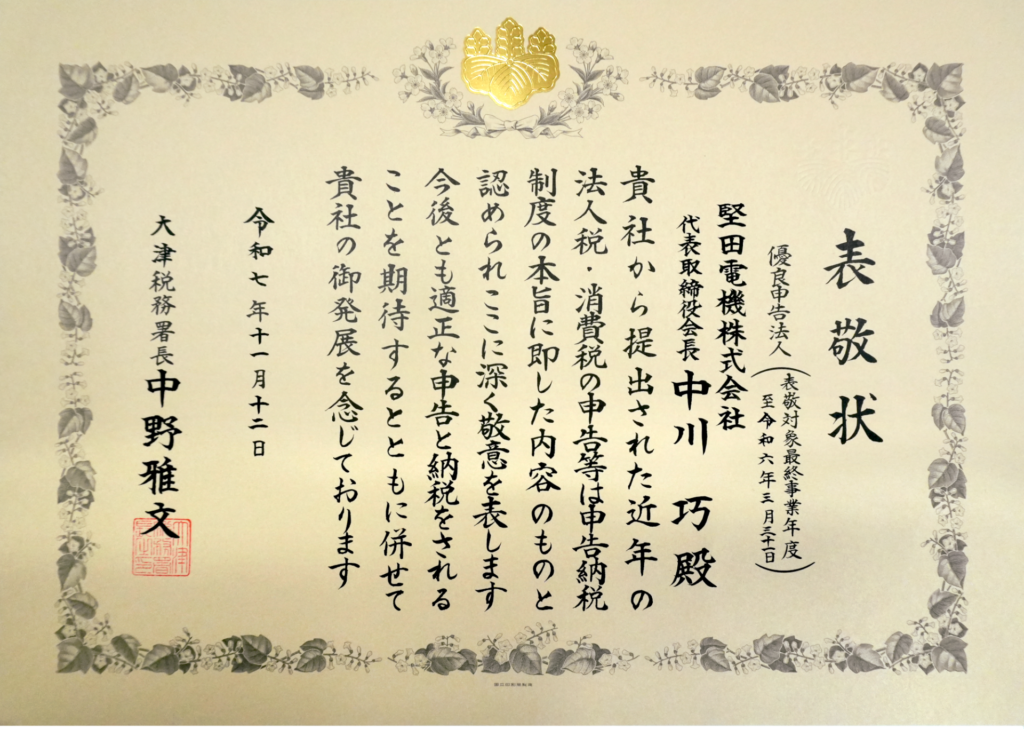 表敬状
優良申告法人
(表敬対象最終事業年度
至令和六年三月三十一日)
堅田電機株式会社
代表取締役会長 中川 巧 殿
貴社から提出された近年の
法人税・消費税の申告等は申告納税
制度の本旨に即した内容のものと
認められここに深く敬意を表します
今後とも適正な申告と納税をされる
ことを期待するとともに併せて
貴社の御発展を念じております
令和七年十一月十二日
大津税務署長 中野雅文